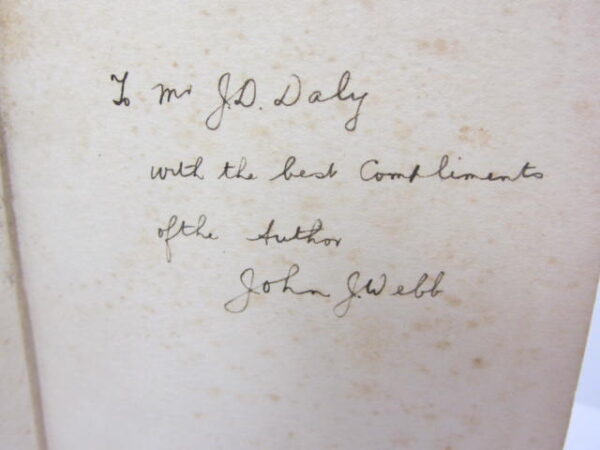 To Mr J.D. Daly
with the best Compliments
of the Author
John J. Webb